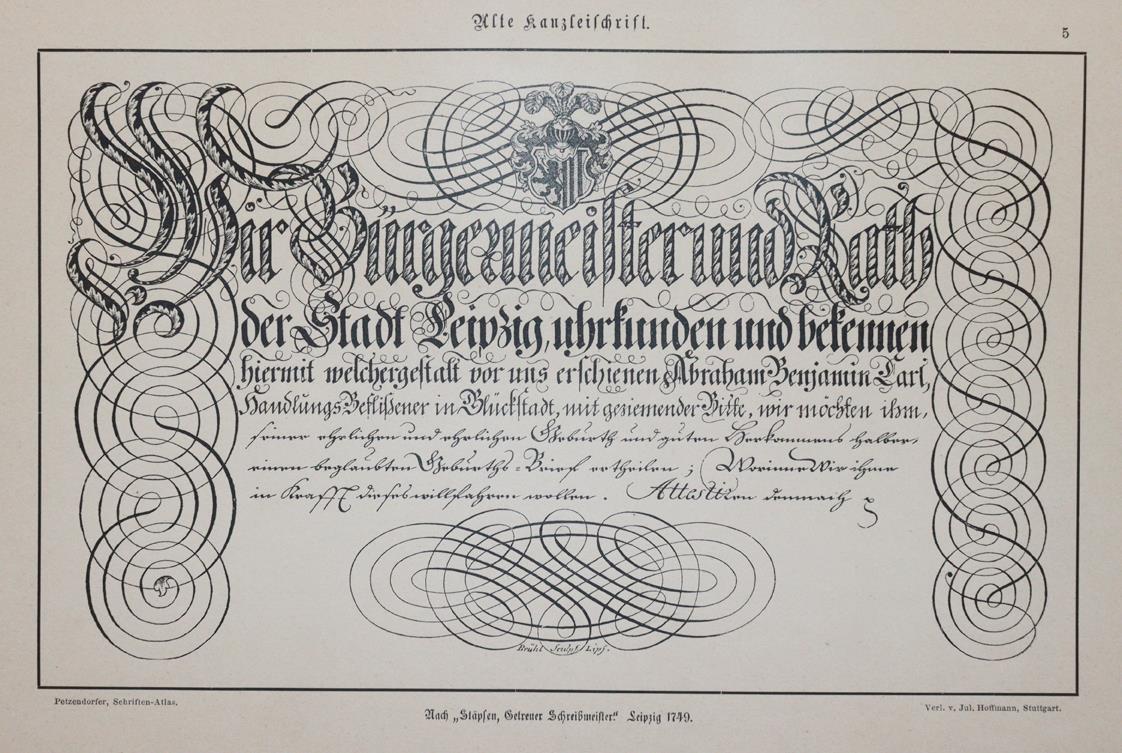 Alte Kanzleischrift.
5
Wir Bürgemeister und Rath
der Stadt Leipzig, uhrkunden und bekennen
hiermit welchergestalt vor uns erschienen Abraham Benjamin Carl,
Handlungs Beflißener in Glückstadt, mit geziemender Bitte, wir möchten ihm,
seiner ehrlichen und ehelichen Geburth und guten Herkommens halber,
einen beglaubten Geburths-Brief ertheilen; Worinne Wir ihme
in Krafft dieses willfahren wollen. Attestiren demnach
Brühl Sculps Lips.
Petzendorfer, Schriften-Atlas.
Nach „Stäpsen, Getreuer Schreibmeister.“ Leipzig 1749.
Verl. v. Jul. Hoffmann, Stuttgart.